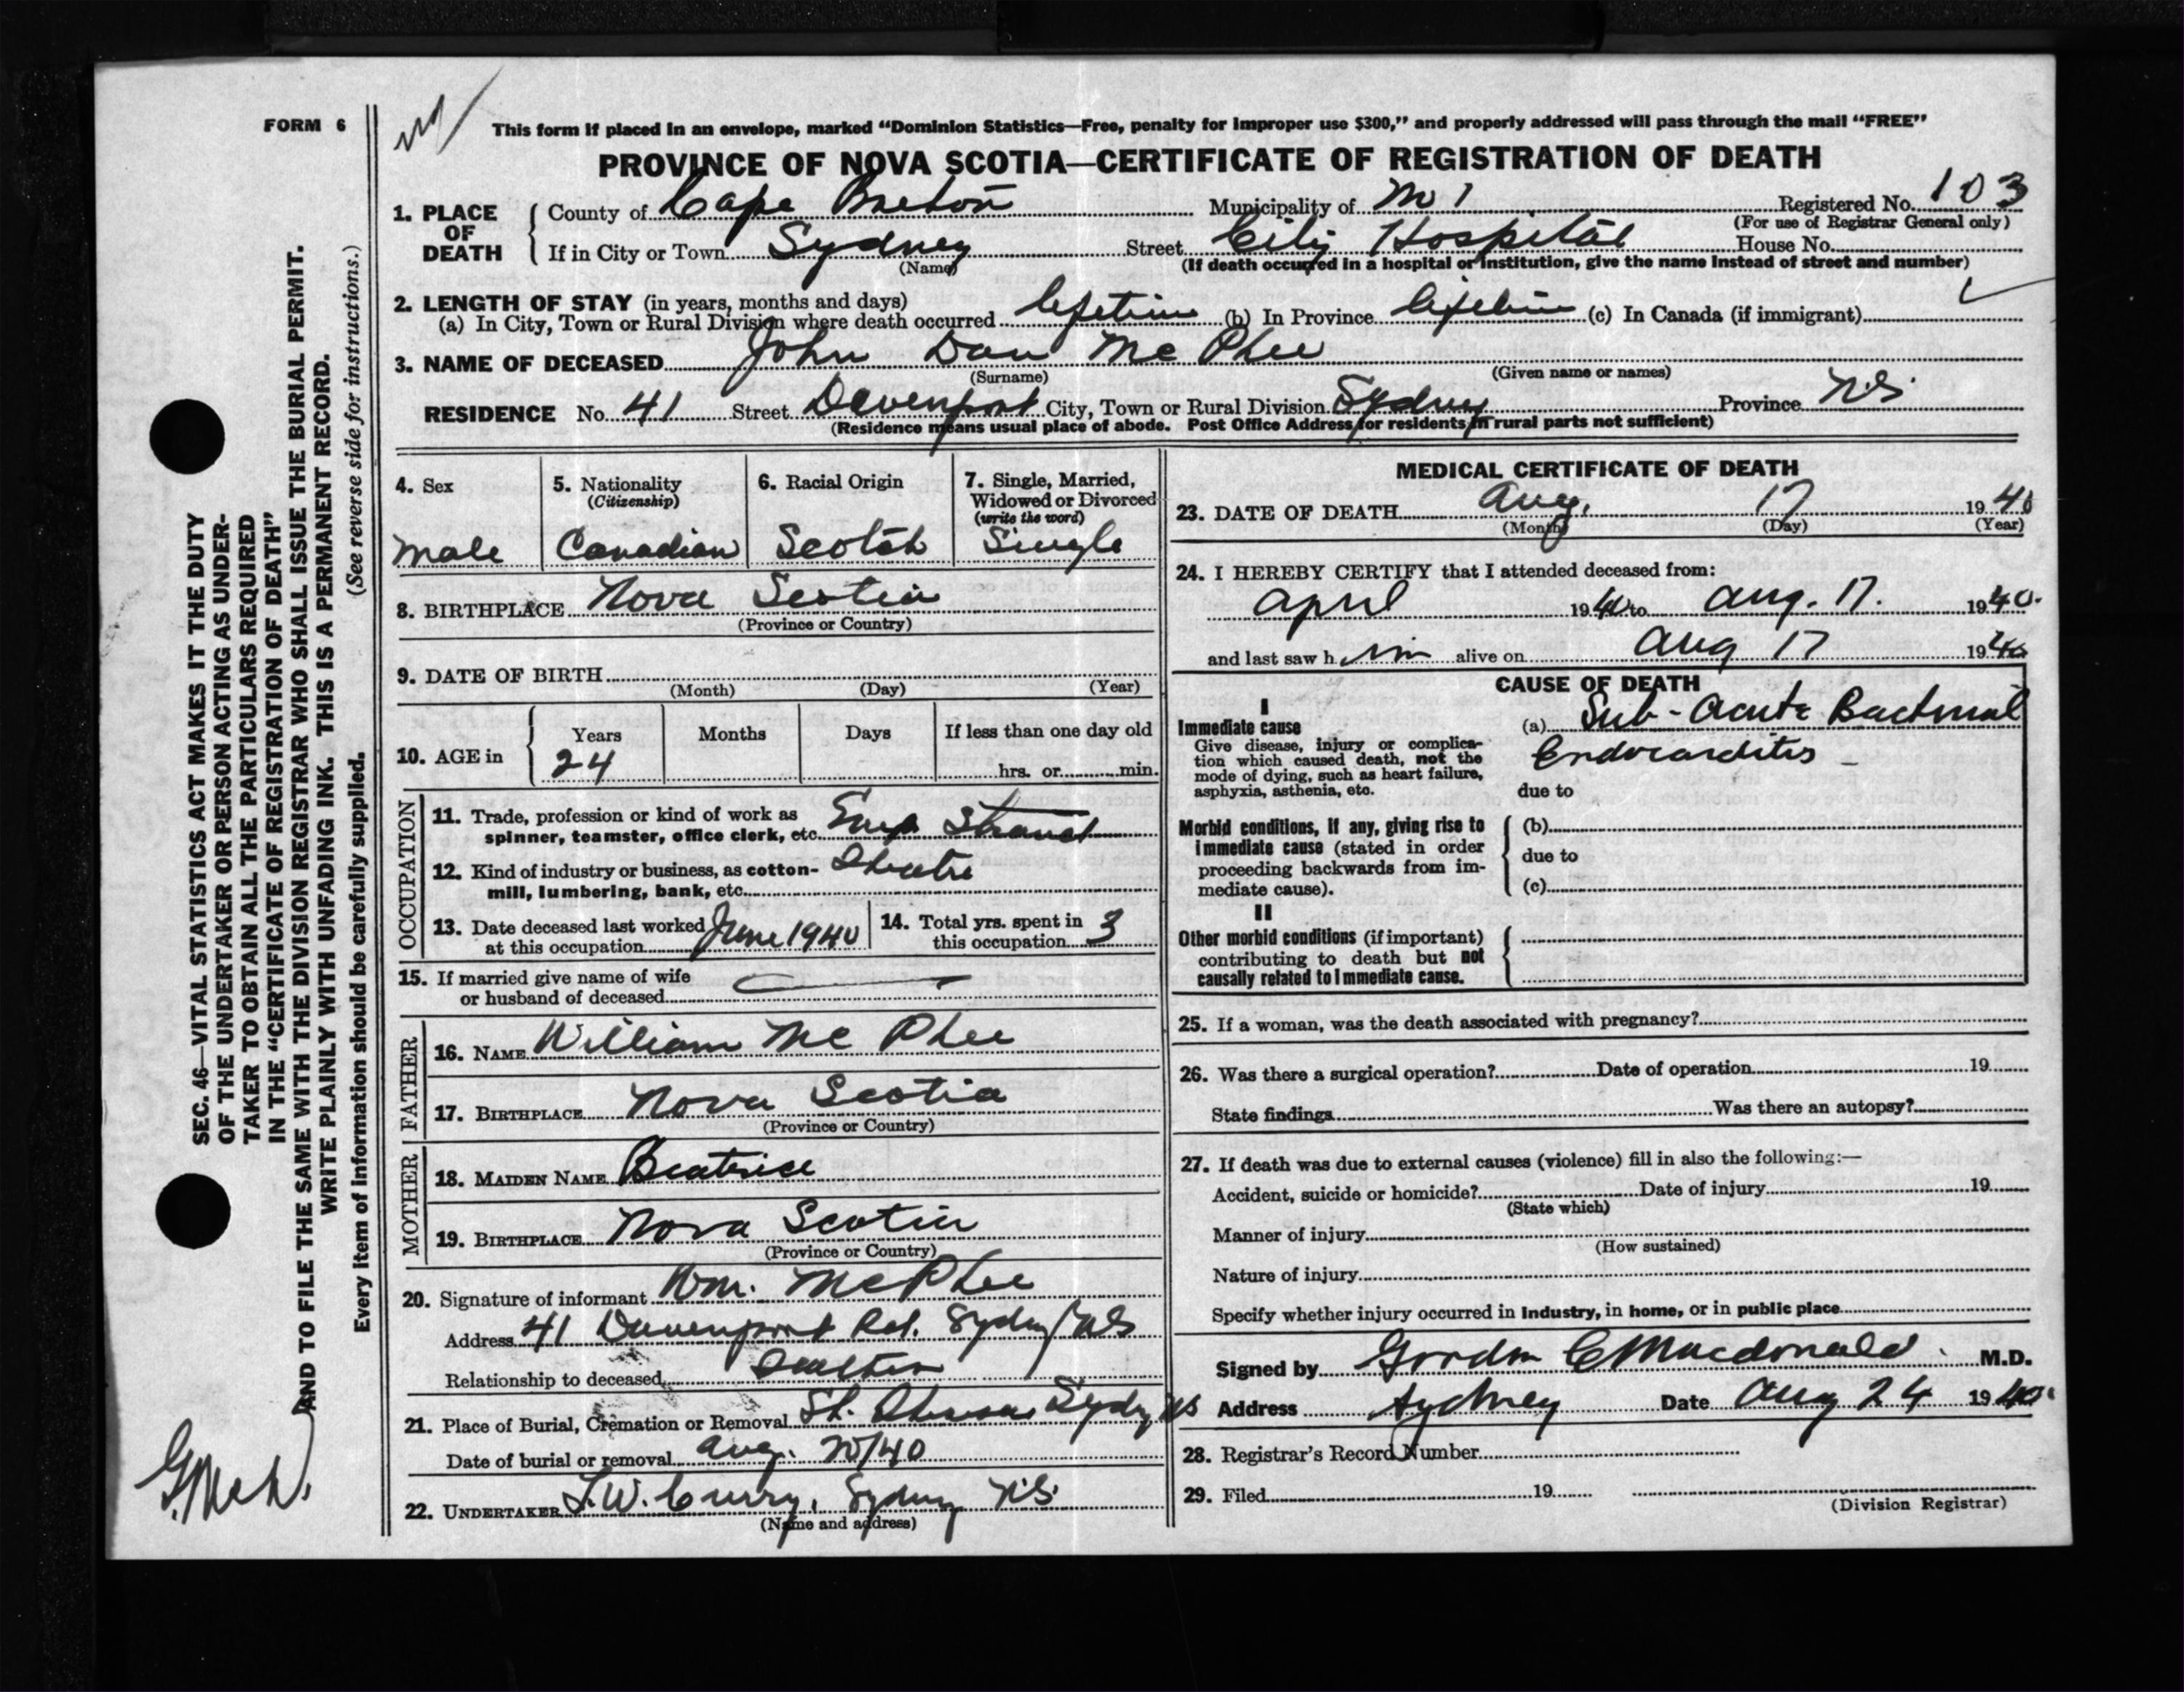 FORM 6
This form if placed in an envelope, marked “Dominion Statistics—Free, penalty for improper use $300,” and properly addressed will pass through the mail “FREE”
PROVINCE OF NOVA SCOTIA—CERTIFICATE OF REGISTRATION OF DEATH
1. PLACE OF DEATH
County of Cape Breton Municipality of Registered No. 103
(For use of Registrar General only)
If in City or Town Sydney Street City Hospital House No.
(Name) (If death occurred in a hospital or institution, give the name instead of street and number)
2. LENGTH OF STAY (in years, months and days)
(a) In City, Town or Rural Division where death occurred lifetime (b) In Province lifetime (c) In Canada (if immigrant)
3. NAME OF DECEASED John Dan Mc Phee
(Surname) (Given name or names)
RESIDENCE No. 41 Street Davenport City, Town or Rural Division Sydney Province N.S.
(Residence means usual place of abode. Post Office Address for residents in rural parts not sufficient)
4. Sex
male
5. Nationality
(Citizenship)
Canadian
6. Racial Origin
Scotch
7. Single, Married,
Widowed or Divorced
(write the word)
Single
8. BIRTHPLACE Nova Scotia
(Province or Country)
9. DATE OF BIRTH
(Month) (Day) (Year)
10. AGE in
Years Months Days If less than one day old
24 hrs. or min.
OCCUPATION
11. Trade, profession or kind of work as
spinner, teamster, office clerk, etc. Strand
12. Kind of industry or business, as cotton-
mill, lumbering, bank, etc. Theatre
13. Date deceased last worked
at this occupation June 1940
14. Total yrs. spent in
this occupation 3
15. If married give name of wife
or husband of deceased
FATHER
16. NAME William Mc Phee
17. BIRTHPLACE Nova Scotia
(Province or Country)
MOTHER
18. MAIDEN NAME Beatrice
19. BIRTHPLACE Nova Scotia
(Province or Country)
20. Signature of informant Wm. McPhee
Address 41 Davenport Rd. Sydney NS
Relationship to deceased
21. Place of Burial, Cremation or Removal St. Sydney NS
Date of burial or removal Aug. 20/40
22. UNDERTAKER Curry, Sydney N.S.
(Name and address)
MEDICAL CERTIFICATE OF DEATH
23. DATE OF DEATH Aug. 17 1940
(Month) (Day) (Year)
24. I HEREBY CERTIFY that I attended deceased from:
April 1940 to Aug. 17. 1940.
and last saw him alive on Aug 17 1940
CAUSE OF DEATH
I
Immediate cause
Give disease, injury or complica-
tion which caused death, not the
mode of dying, such as heart failure,
asphyxia, asthenia, etc.
(a) Sub-Acute Bacterial
Endocarditis
due to
Morbid conditions, if any, giving rise to
immediate cause (stated in order
proceeding backwards from im-
mediate cause).
(b)
due to
(c)
II
Other morbid conditions (if important)
contributing to death but not
causally related to immediate cause.
25. If a woman, was the death associated with pregnancy?
26. Was there a surgical operation? Date of operation 19
State findings Was there an autopsy?
27. If death was due to external causes (violence) fill in also the following:—
Accident, suicide or homicide? Date of injury 19
(State which)
Manner of injury
(How sustained)
Nature of injury
Specify whether injury occurred in industry, in home, or in public place
Signed by Gordon C Macdonald. M.D.
Address Sydney Date Aug 24 1940.
28. Registrar’s Record Number
29. Filed 19
(Division Registrar)
SEC. 46—VITAL STATISTICS ACT MAKES IT THE DUTY
OF THE UNDERTAKER OR PERSON ACTING AS UNDER-
TAKER TO OBTAIN ALL THE PARTICULARS REQUIRED
IN THE “CERTIFICATE OF REGISTRATION OF DEATH”
AND TO FILE THE SAME WITH THE DIVISION REGISTRAR WHO SHALL ISSUE THE BURIAL PERMIT.
WRITE PLAINLY WITH UNFADING INK. THIS IS A PERMANENT RECORD.
Every item of information should be carefully supplied. (See reverse side for instructions.)